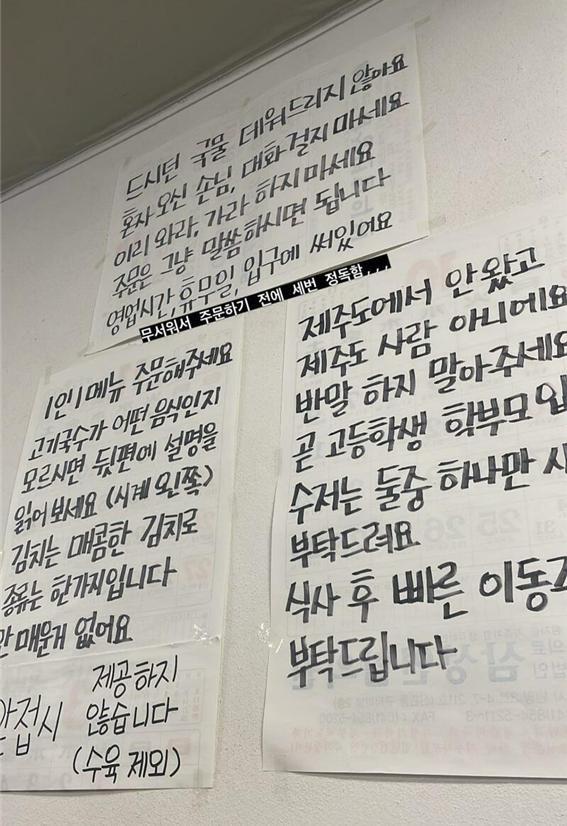 드시던 국물 데워드리지 않아요
혼자 오신 손님, 대화 걸지 마세요
이리 와라, 가라 하지마세요
주문은 그냥 말씀하시면 됩니다
영업시간, 휴무일, 입구에 써있어요
무서워서 주문하기 전에 세번 정독함,,,
1인 1메뉴 주문해주세요
고기국수가 어떤 음식인지
모르시면 뒷편에 설명을
읽어보세요 (시계 왼쪽)
김치는 매콤한 김치로
종류는 한가지입니다
매운거 없어요
제공하지
접시 않습니다
(수육 제외)
제주도에서 안 왔고
제주도 사람 아니에요
반말 하지 말아주세요
곧 고등학생 학부모
수저는 둘중 하나만
부탁드려요
식사 후 빠른 이동
부탁드립니다